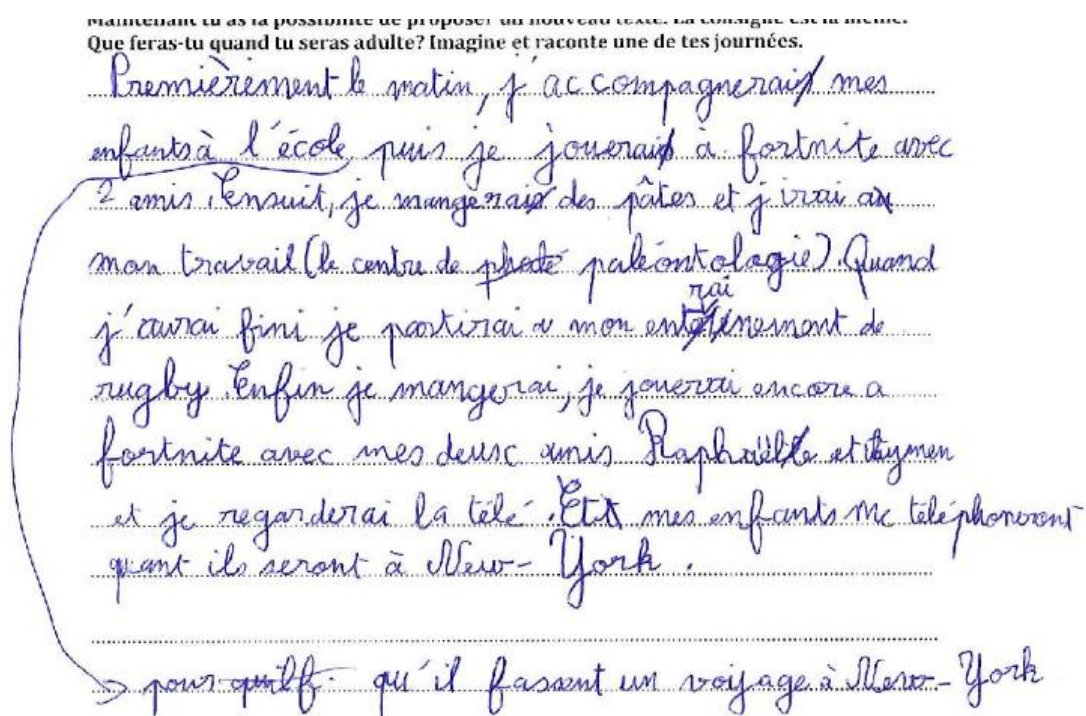 Maintenant tu as la possibilité de proposer un nouveau texte. La consigne est la même.
Que feras-tu quand tu seras adulte? Imagine et raconte une de tes journées.
Premièrement le matin, j'accompagnerai mes
enfants à l'école puis je jouerai à fortnite avec
2 amis. Ensuit, je mangerai des pâtes et j'irai a
mon travail (le centre de paléontologie). Quand
j'aurai fini je partirai a mon entrainement de
rugby. Enfin je mangerai, je jouerai encore a
fortnite avec mes deux amis Raphaël et
et je regarderai la télé. Et mes enfants me téléphoneront
quant ils seront à New-York.
→ pour qu'il fassent un voyage à New-York